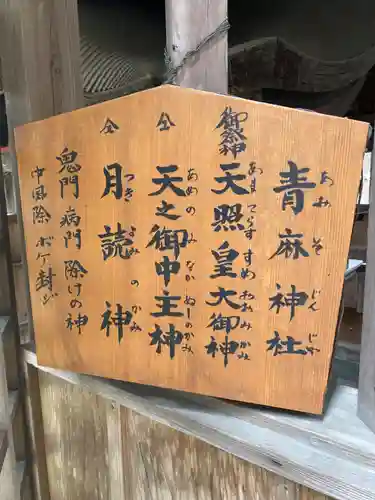 青麻神社
あおそじんじゃ
御祭神
天照皇大御神
あまてらすすめおおみかみ
仝
天之御中主神
あめのみなかぬしのかみ
仝
月読神
つきよみのかみ
鬼門 病門 除けの神
中風除 ボケ封じ